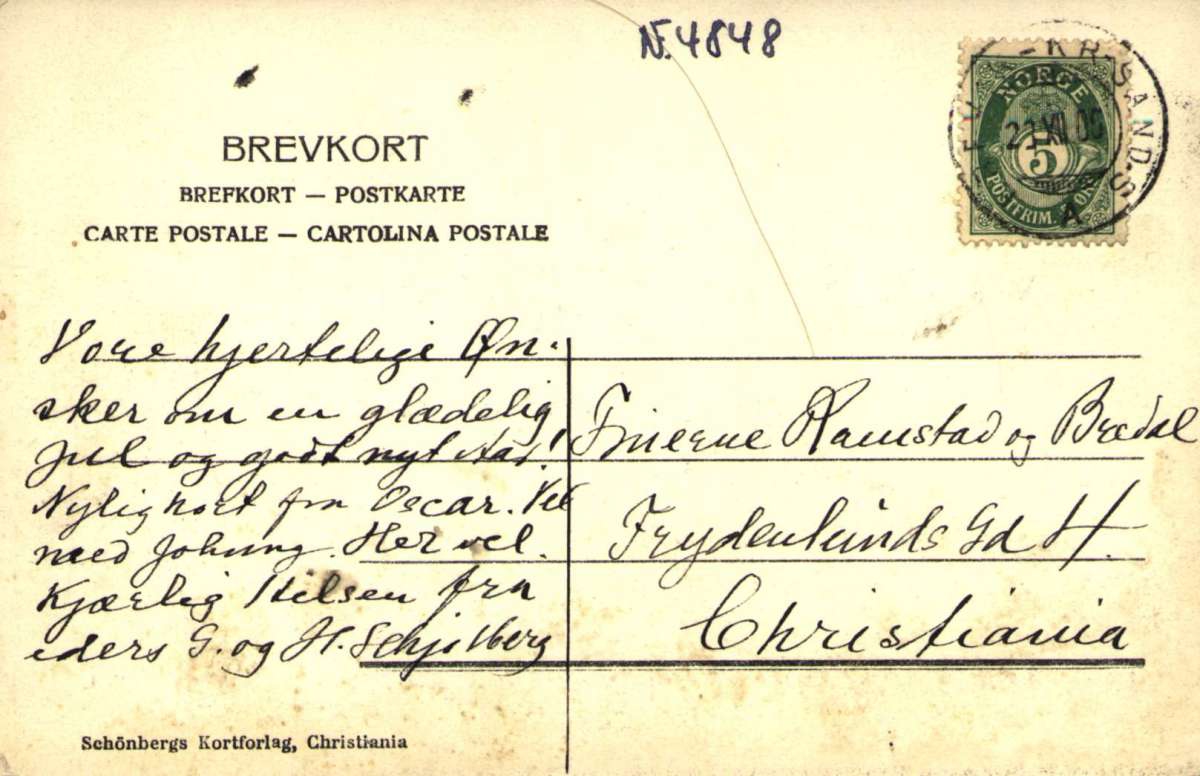 Nr. 4848
BREVKORT
BREFKORT — POSTKARTE
CARTE POSTALE — CARTOLINA POSTALE
NORGE
5
POSTFRIM.
KR.SAND.S
21 XII 0
A
Vore hjertelige Øn-
sker om en glædelig
Jul og godt nyt Aar!
Nylig hørt fra Oscar. Vel
med Johnny. Her vel.
Kjærlig Hilsen fra
eders G. og H. Schjelberg
Ramstad og Bredal
Frydenlunds Gd 4.
Christiania
Schönbergs Kortforlag, Christiania